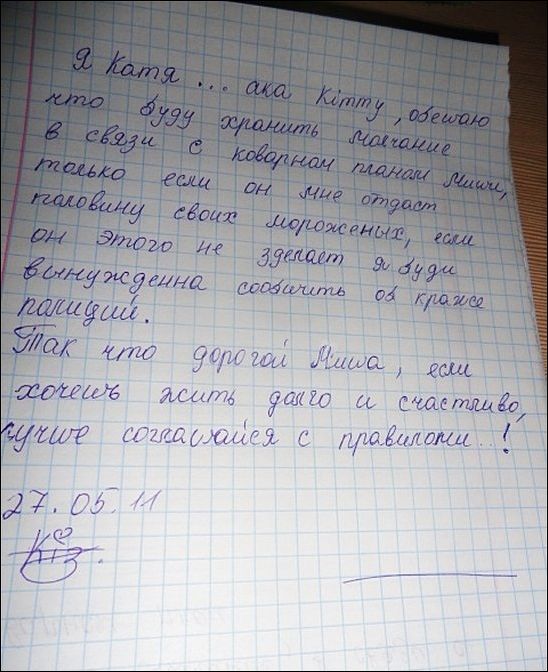 Я Катя ... ака Kітту, обещаю
что буду хранить молчание
в связи с коварном планом Миши,
только если он мне отдаст
половину своих мороженых, если
он этого не зделает я буди
вынужденна сообичить об краже
полиций.
Так что дорогой Миша, если
хочешь жить долго и счастливо,
лучше соглашайся с правилами...!
27.05.11